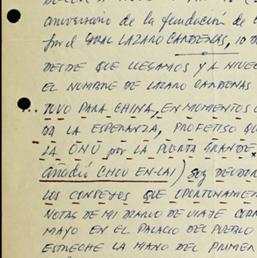 aniversario de la fundación de
por el GRAL LAZARO CARDENAS, 10
DESDE QUE LLEGAMOS Y A NIVE
EL NOMBRE DE LAZARO CARDENAS
TUVO PARA CHINA, EN MOMENTOS
DA LA ESPERANZA, PROFETISO QU
LA ONU POR LA PUERTA GRANDE
(añadió CHOU EN-LAI) soy DEUDOR
LOS CONSEJOS QUE OPORTUNAMEN
NOTAS DE MI DIARIO DE VIAJE CORR
MAYO EN EL PALACIO DEL PUEBLO
ESTRECHE LA MANO DEL PRIMER